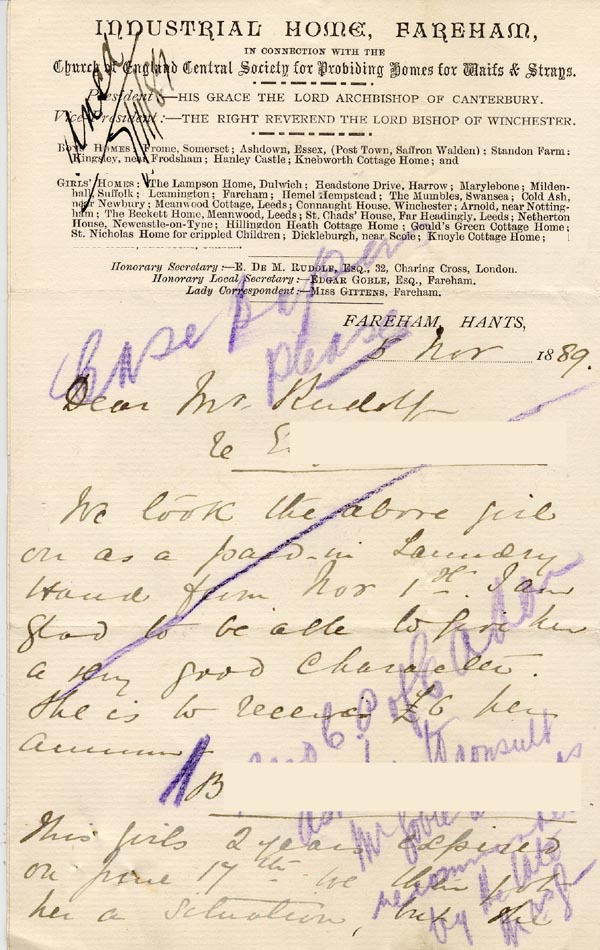 INDUSTRIAL HOME, FAREHAM,
IN CONNECTION WITH THE
Church of England Central Society for Probiding Homes for Waifs & Strays.
President:—HIS GRACE THE LORD ARCHBISHOP OF CANTERBURY.
Vice-President:—THE RIGHT REVEREND THE LORD BISHOP OF WINCHESTER.
BOYS' HOMES: Frome, Somerset; Ashdown, Essex, (Post Town, Saffron Walden); Standon Farm:
Kingsley, near Frodsham; Hanley Castle; Knebworth Cottage Home; and
GIRLS' HOMES: The Lampson Home, Dulwich; Headstone Drive, Harrow; Marylebone; Milden-
hall, Suffolk; Leamington; Fareham; Hemel Hempstead; The Mumbles, Swansea; Cold Ash,
near Newbury; Meanwood Cottage, Leeds; Connaught House, Winchester; Arnold, near Notting-
ham; The Beckett Home, Meanwood, Leeds; St. Chads' House, Far Headingly, Leeds; Netherton
House, Newcastle-on-Tyne; Hillingdon Heath Cottage Home; Gould's Green Cottage Home;
St. Nicholas Home for crippled Children; Dickleburgh, near Scole; Knoyle Cottage Home;
Honorary Secretary:—E. DE M. RUDOLF, ESQ., 32, Charing Cross, London.
Honorary Local Secretary:—EDGAR GOBLE, ESQ., Fareham.
Lady Correspondent:—MISS GITTENS, Fareham.
Case papers
please
FAREHAM, HANTS,
5 Nov 1889.
Dear Mr. Rudolf
Re E
We took the above girl
on as a paid-in Laundry
Hand from Nov 1st. I am
glad to be able to give her
a very good Character.
She is to receive £6 per
annum
B
This girls 2 years expired
on June 17th we then got
her a situation, but she
consult
Mr Goble
recommended
by